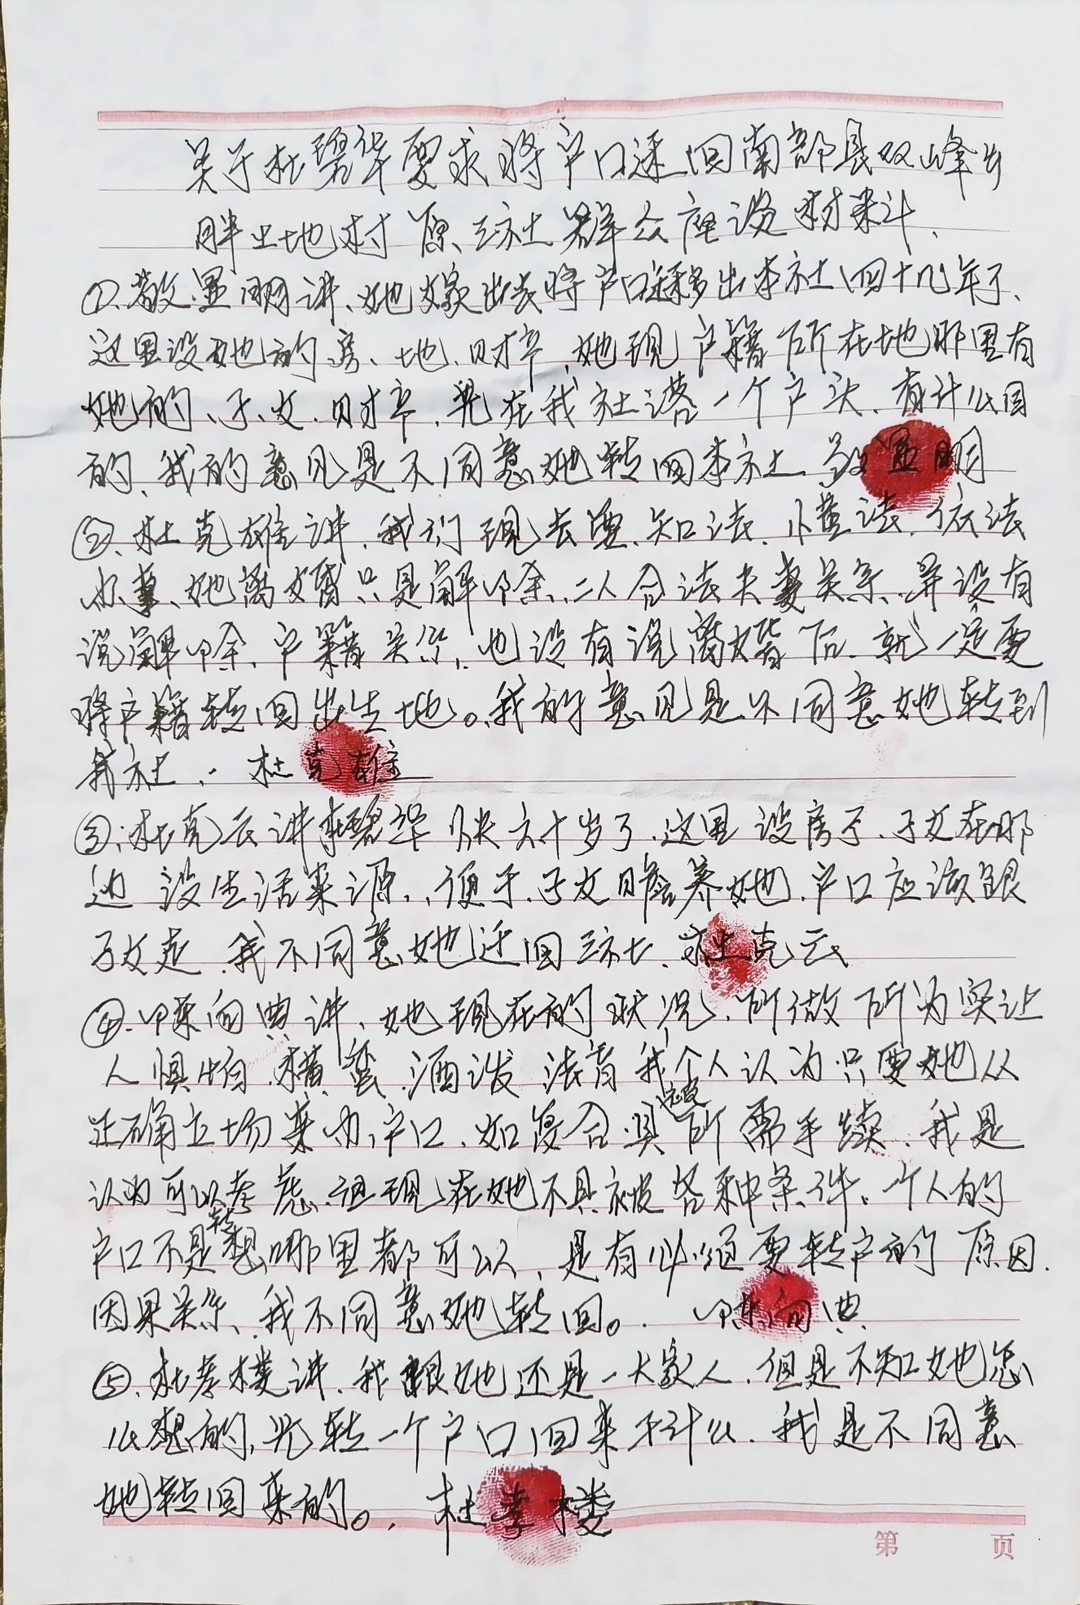 关于杜碧华要求将户口迁回南部县双峰乡
胖土地村原三社群众座谈材料.
①、敬显明讲、她嫁出去将户口迁移出本社四十几年了、
这里没她的房、地、财产、她现户籍所在地那里有
她的、子、女、财产、光在我社落一个户头、有什么目
的、我的意见是不同意她转回本社、敬显明
②、杜克雄讲、我们现去要、知法、懂法、依法
办事、她离婚只是解除、二人合法夫妻关系、并没有
说解除、户籍关系、也没有说离婚后、就一定要
将户籍转回出生地。我的意见是不同意她转到
我社、. 杜克雄
③、杜克云讲杜碧华快六十岁了、这里没房子、子女在那
边没生活来源、便于、子女赡养她、户口应该跟
子女走、我不同意她迁回三社、杜克云
④、陈向典讲、她现在的状况、所做所为实让
人惧怕、横蛮、洒泼、法盲我个人认为只要她从
正确立场来办户口、如复合具备所需手续、我是
认为可以考虑、但现在她不具备各种条件、一个人的
户口不是想转哪里都可以、是有必须要转户的原因.
因果关系、我不同意她转回。. 陈向典
⑤、杜孝楼讲、我跟她还是一大家人、但是不知她怎
么想的、光转一个户口回来干什么、我是不同意
她转回来的。. 杜孝楼
第 页